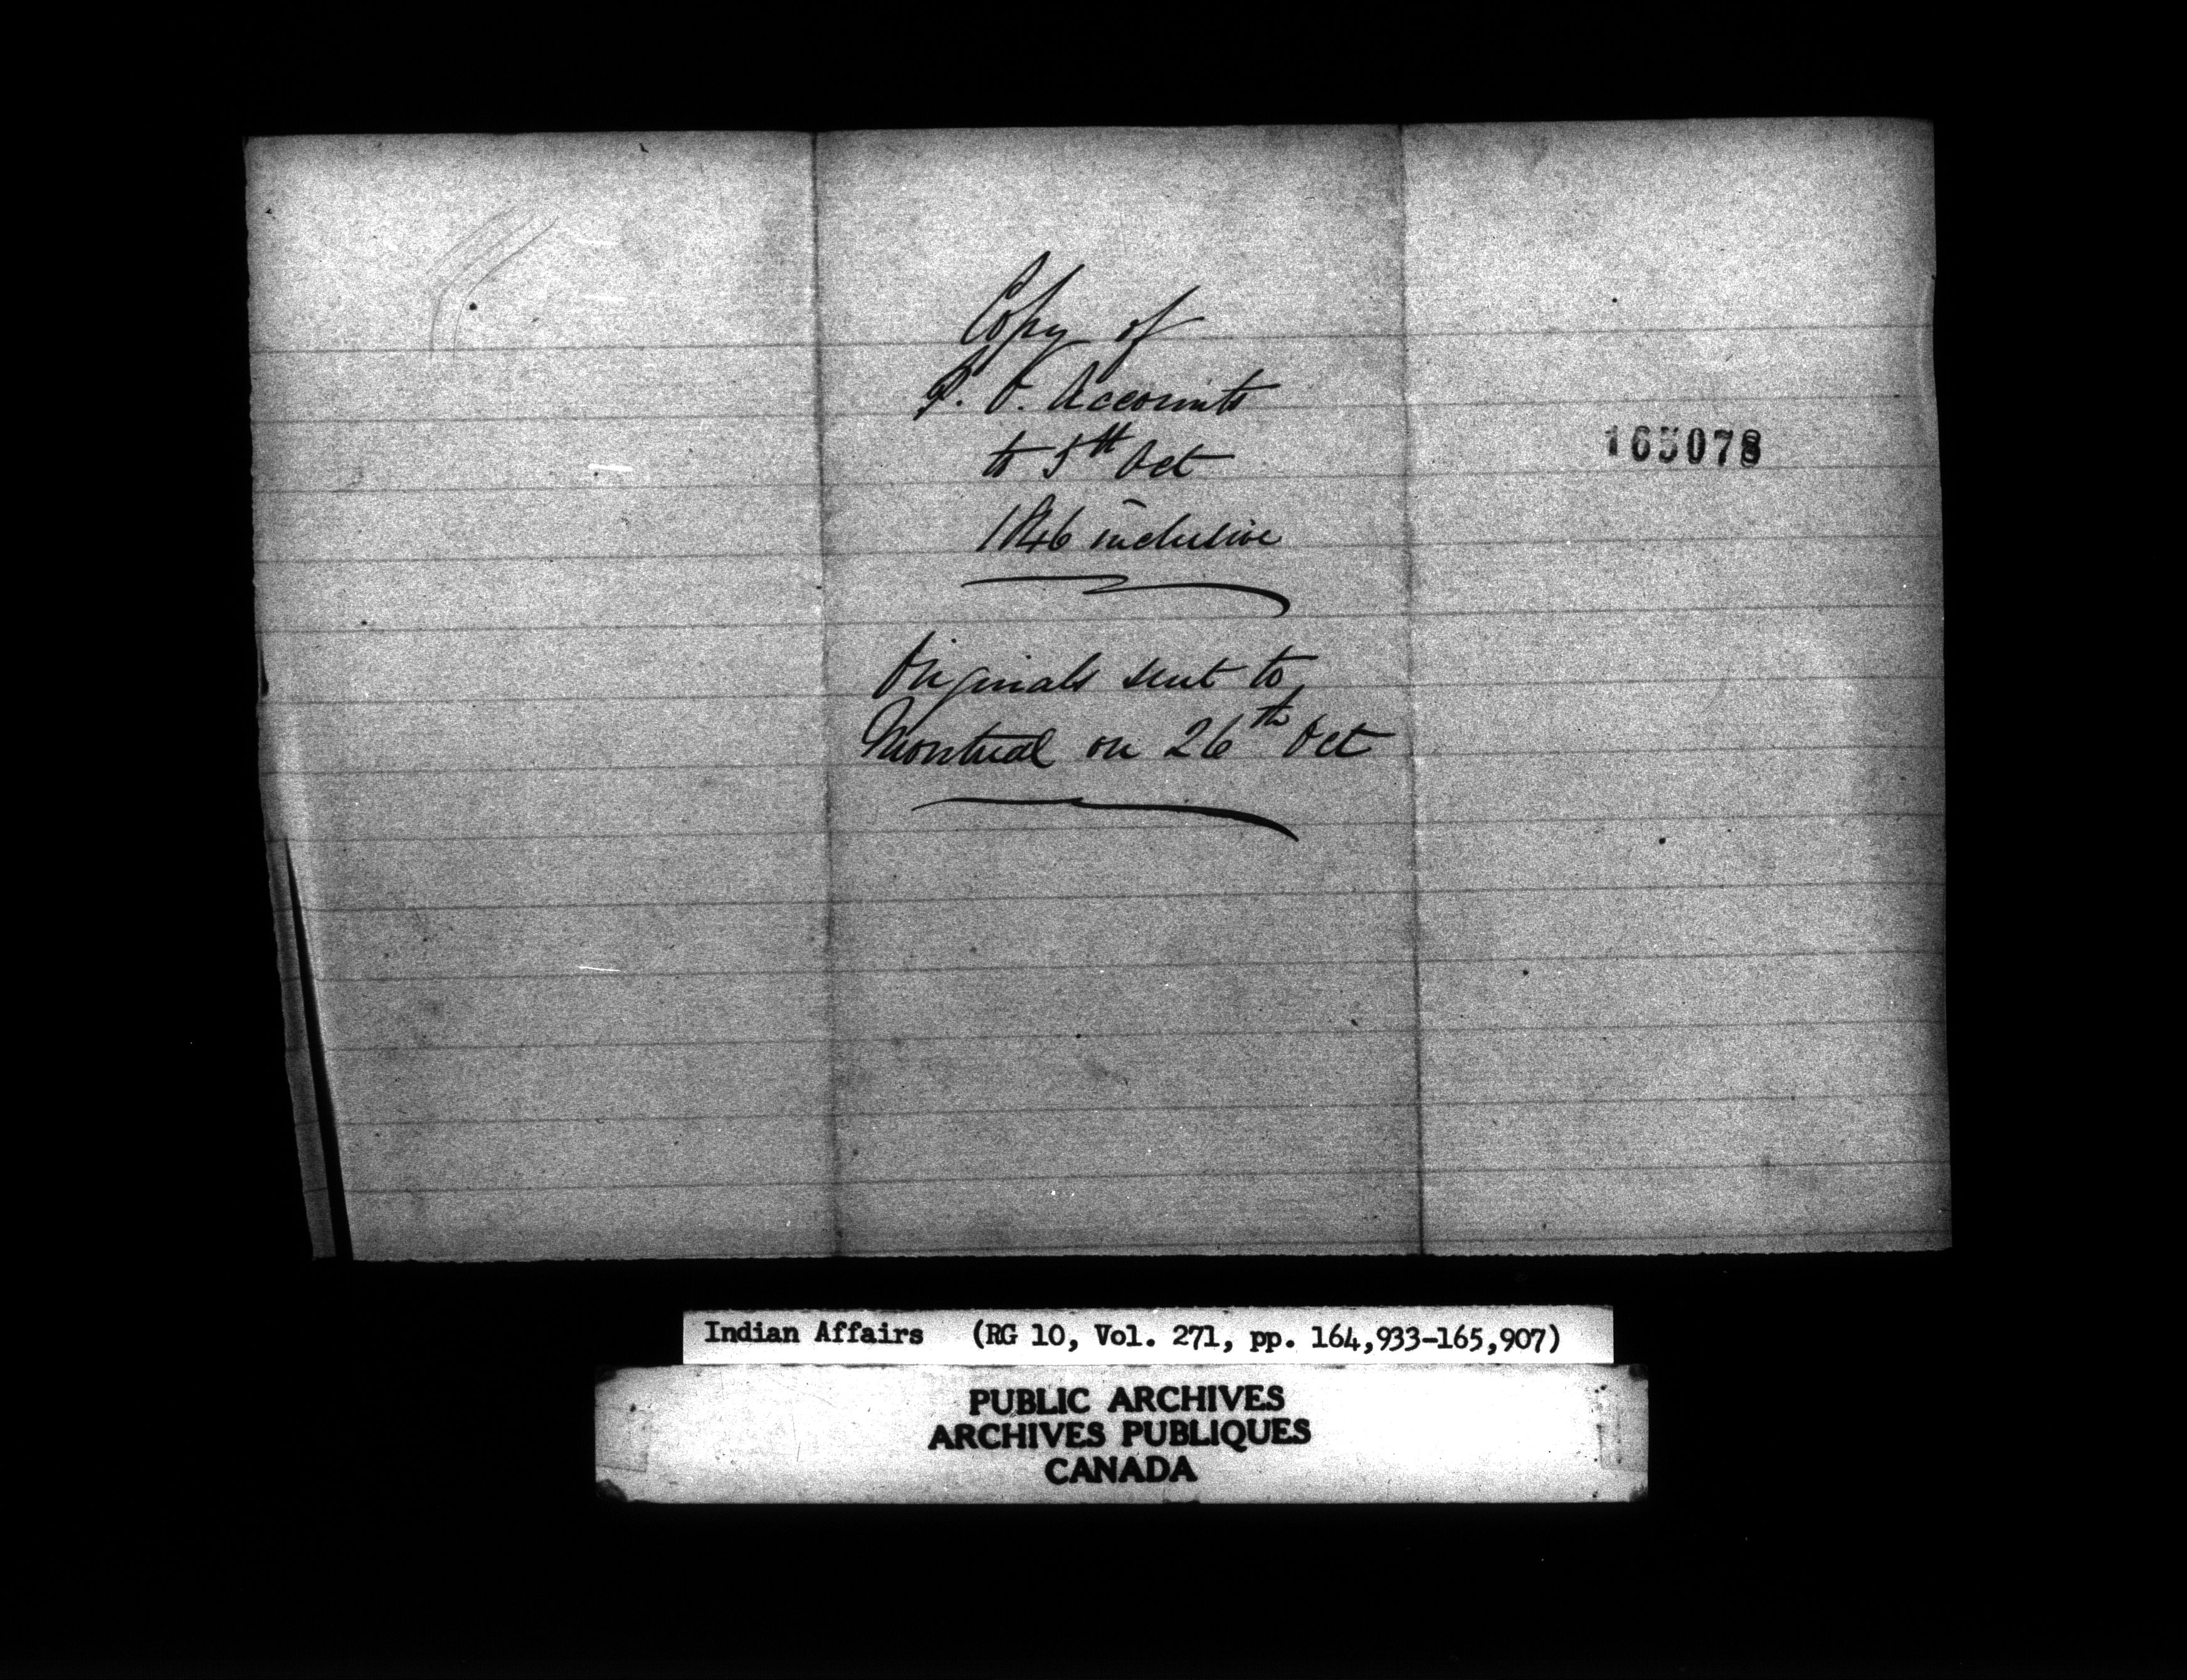 Copy of
P. O. Accounts
to 5th Oct
1846 inclusive
165078
Originals sent to
Montreal on 26th Oct
Indian Affairs (RG 10, Vol. 271, pp. 164,933-165,907)
PUBLIC ARCHIVES
ARCHIVES PUBLIQUES
CANADA